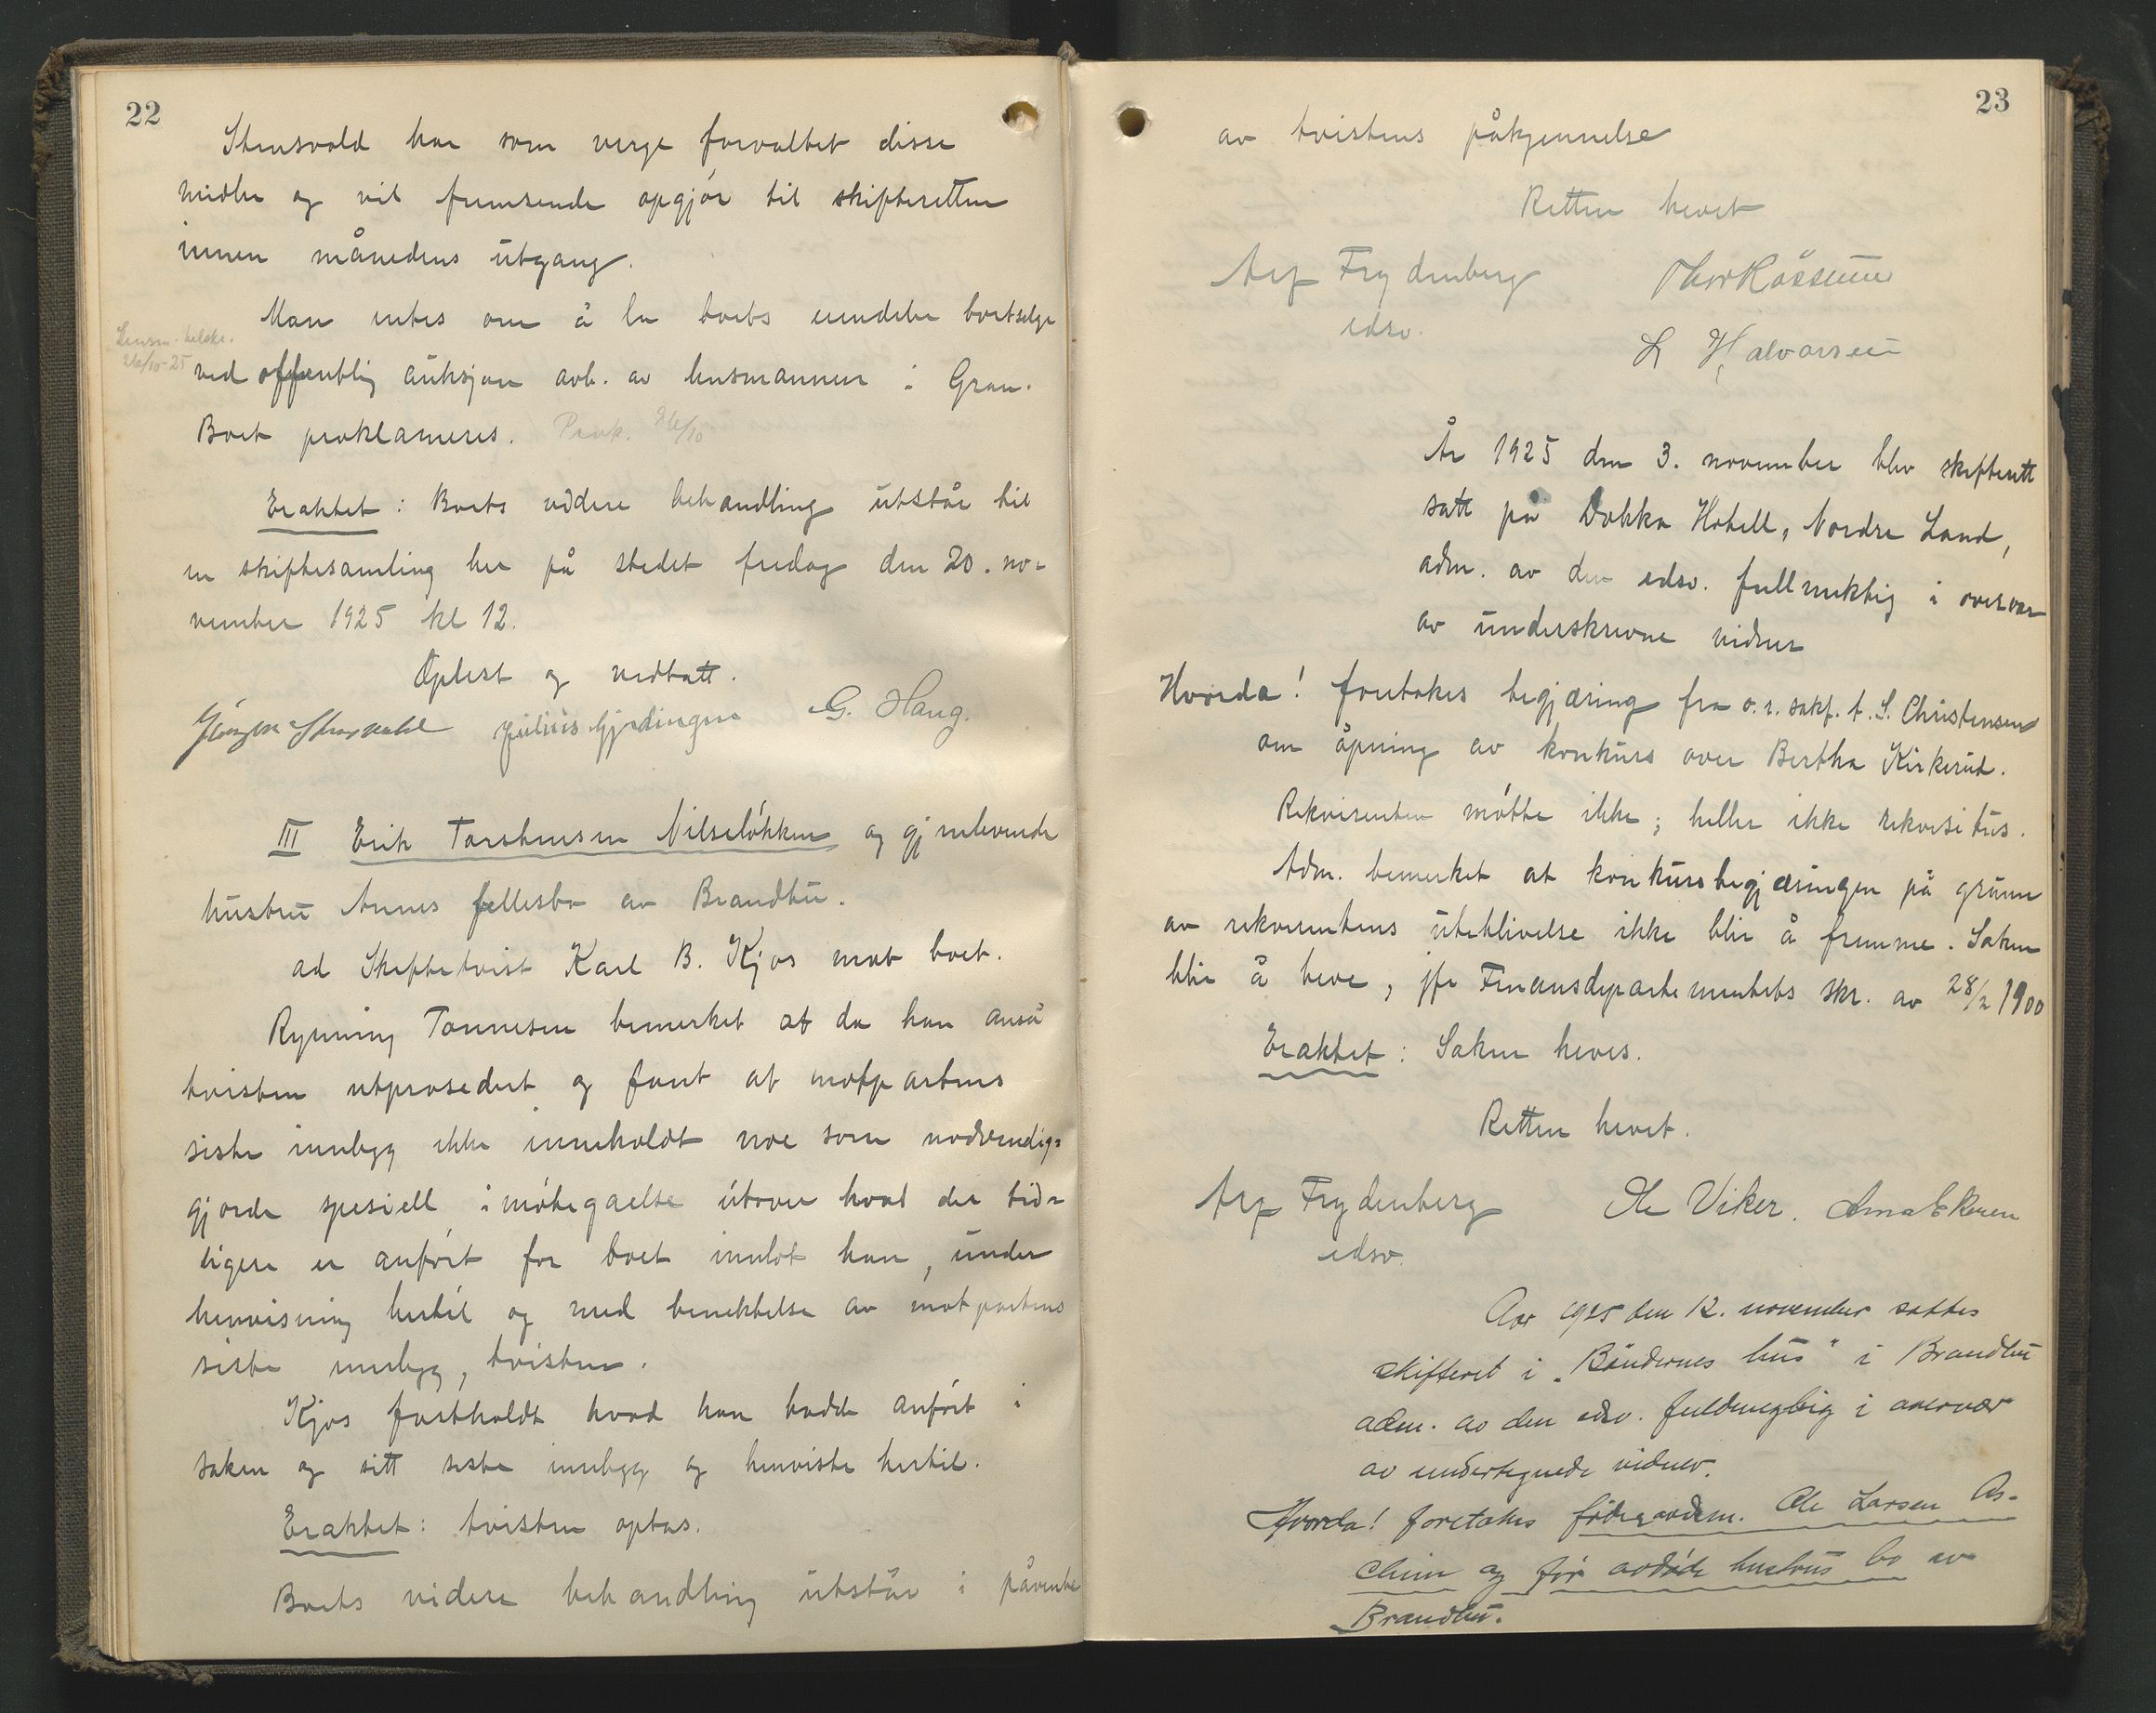 22
Stensvold har som verge forvaltet disse
midler og vil fremsende opgjør til skifteretten
innen månedens utgang.
Man enes om å la boets eiendeler bortselge
Lensm. tilskr.
26/10-25
ved offentlig auksjon avh. av lensmannen i Gran.
Boet proklameres. Prok. 26/10
Eraktet: Boets videre behandling utstår til
en skiftesamling her på stedet fredag den 20. no-
vember 1925 kl 12.
Oplest og vedtatt.
Jørgen Stensvold Julius Gjerdingen G. Haug.
III Erik Torstensen Nilseløkken og gjenlevende
hustru Annes fellesbo av Brandbu.
ad Skiftetvist Karl B. Kjos mot boet.
Rynning Tønnesen bemerket at da han anså
tvisten utprosedert og fant at motpartens
siste innlegg ikke inneholdt noe som nødvendig-
gjorde spesiell imøtegåelse utover hvad der tid-
ligere er anført for boet innlot han, under
henvisning hertil og med benektelse av motpartens
siste innlegg, tvisten.
Kjos fastholdt hvad han hadde anført i
saken og sitt siste innlegg og henviste hertil.
Eraktet: tvisten optas.
Boets videre behandling utstår i påvente
23
av tvistens påkjennelse
Retten hevet
Arf Frydenberg Thor Røssum
edsv.
L Halvorsen
År 1925 den 3. november blev skifterett
satt på Dokka Hotell, Nordre Land,
adm. av den edsv. fullmektig i overvær
av underskrevne vidner
Hvorda! foretokes begjæring fra o.r. sakf. t. S. Christensen
om åpning av konkurs over Bertha Kirkerud.
Rekvirenten møtte ikke; heller ikke rekvisitus.
Adm. bemerket at konkursbegjæringen på grunn
av rekvirentens uteblivelse ikke blir å fremme. Saken
blir å heve, jfr Finansdepartementets skr. av 28/2 1900
Eraktet: Saken heves.
Retten hevet.
Arf Frydenberg Ole Viker. Arna Ekeren
edsv.
Aar 1925 den 12. november sattes
skifteret i "Bøndernes hus" i Brandbu
adm. av den edsv. fuldmegtig i overvær
av undertegnede vidner.
Hvorda! foretokes føderaadsm. Ole Larsen As-
cheim og før avdøde hustrus bo av
Brandbu.